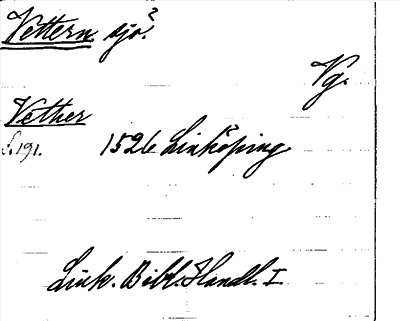 Vettern sjö?
Vg.
Vether
s. 191. 1526 Linköping
Link. Bibl. Handl. I.